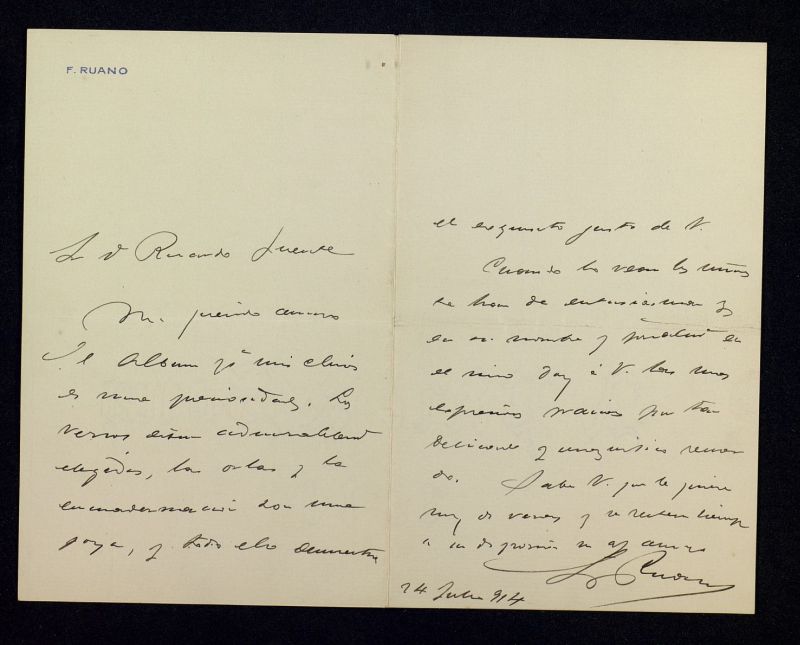 F. RUANO
Sr D Ricardo Fuente
Mi querido amigo
El Album pa mis chicos
es una preciosidad. Los
versos estan admirablemt
elegidos, las orlas y la
encuadernación son una
joya, y todo ello demuestra
el exquisito gusto de V.
Cuando lo vean los niños
se han de entusiasmar y
en su nombre y en
el mio doy á V. las mas
expresivas gracias por tan
delicado y recuer
do. Sabe V. que le quiere
muy de veras y se reitera siempre
a su disposición su af amigo
F Ruano
24 Julio 914